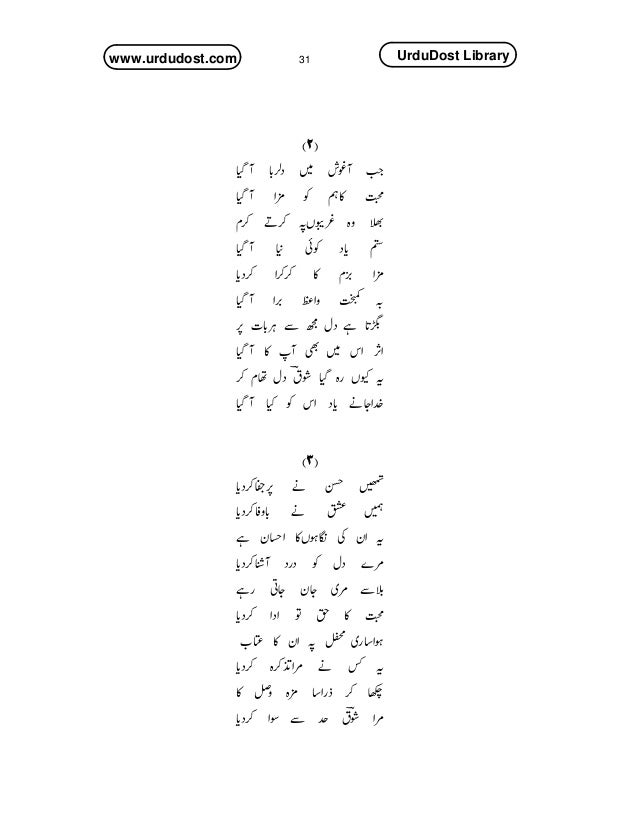 www.urdudost.com
31
UrduDost Library
(۲)
جب آغوش میں دلربا آ گیا
محبت کا ہم کو مزا آ گیا
بھلا وہ غریبوں پہ کرتے کرم
ستم یاد کوئی نیا آ گیا
مزا بزم کا کرکرا کردیا
یہ کمبخت واعظ برا آ گیا
بگڑتا ہے دل مجھ سے ہر بات پر
اثر اس میں بھی آپ کا آ گیا
یہ کیوں رہ گیا شوقؔ دل تھام کر
خدا جانے یاد اس کو کیا آ گیا
(۳)
تمھیں حسن نے پر جفا کردیا
ہمیں عشق نے باوفا کردیا
یہ ان کی نگاہوں کا احسان ہے
مرے دل کو درد آشنا کردیا
بلا سے مری جان جاتی رہے
محبت کا حق تو ادا کردیا
ہوا ساری محفل پہ ان کا عتاب
یہ کس نے مرا تذکرہ کردیا
چکھا کر ذرا سا مزہ وصل کا
مرا شوقؔ حد سے سوا کردیا